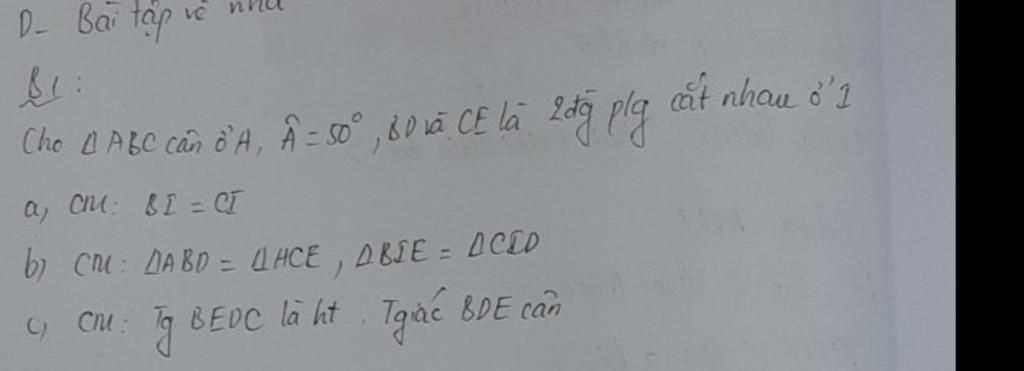 D- Bài tập về nhà
B1:
Cho ΔABC cân ở A, Â = 50°, BD và CE là 2 đg p/g cắt nhau ở I
a, CM: BI = CI
b) CM: ΔABD = ΔACE, ΔBIE = ΔCID
c, CM: Tg BEDC là ht. Tgiác BDE cân